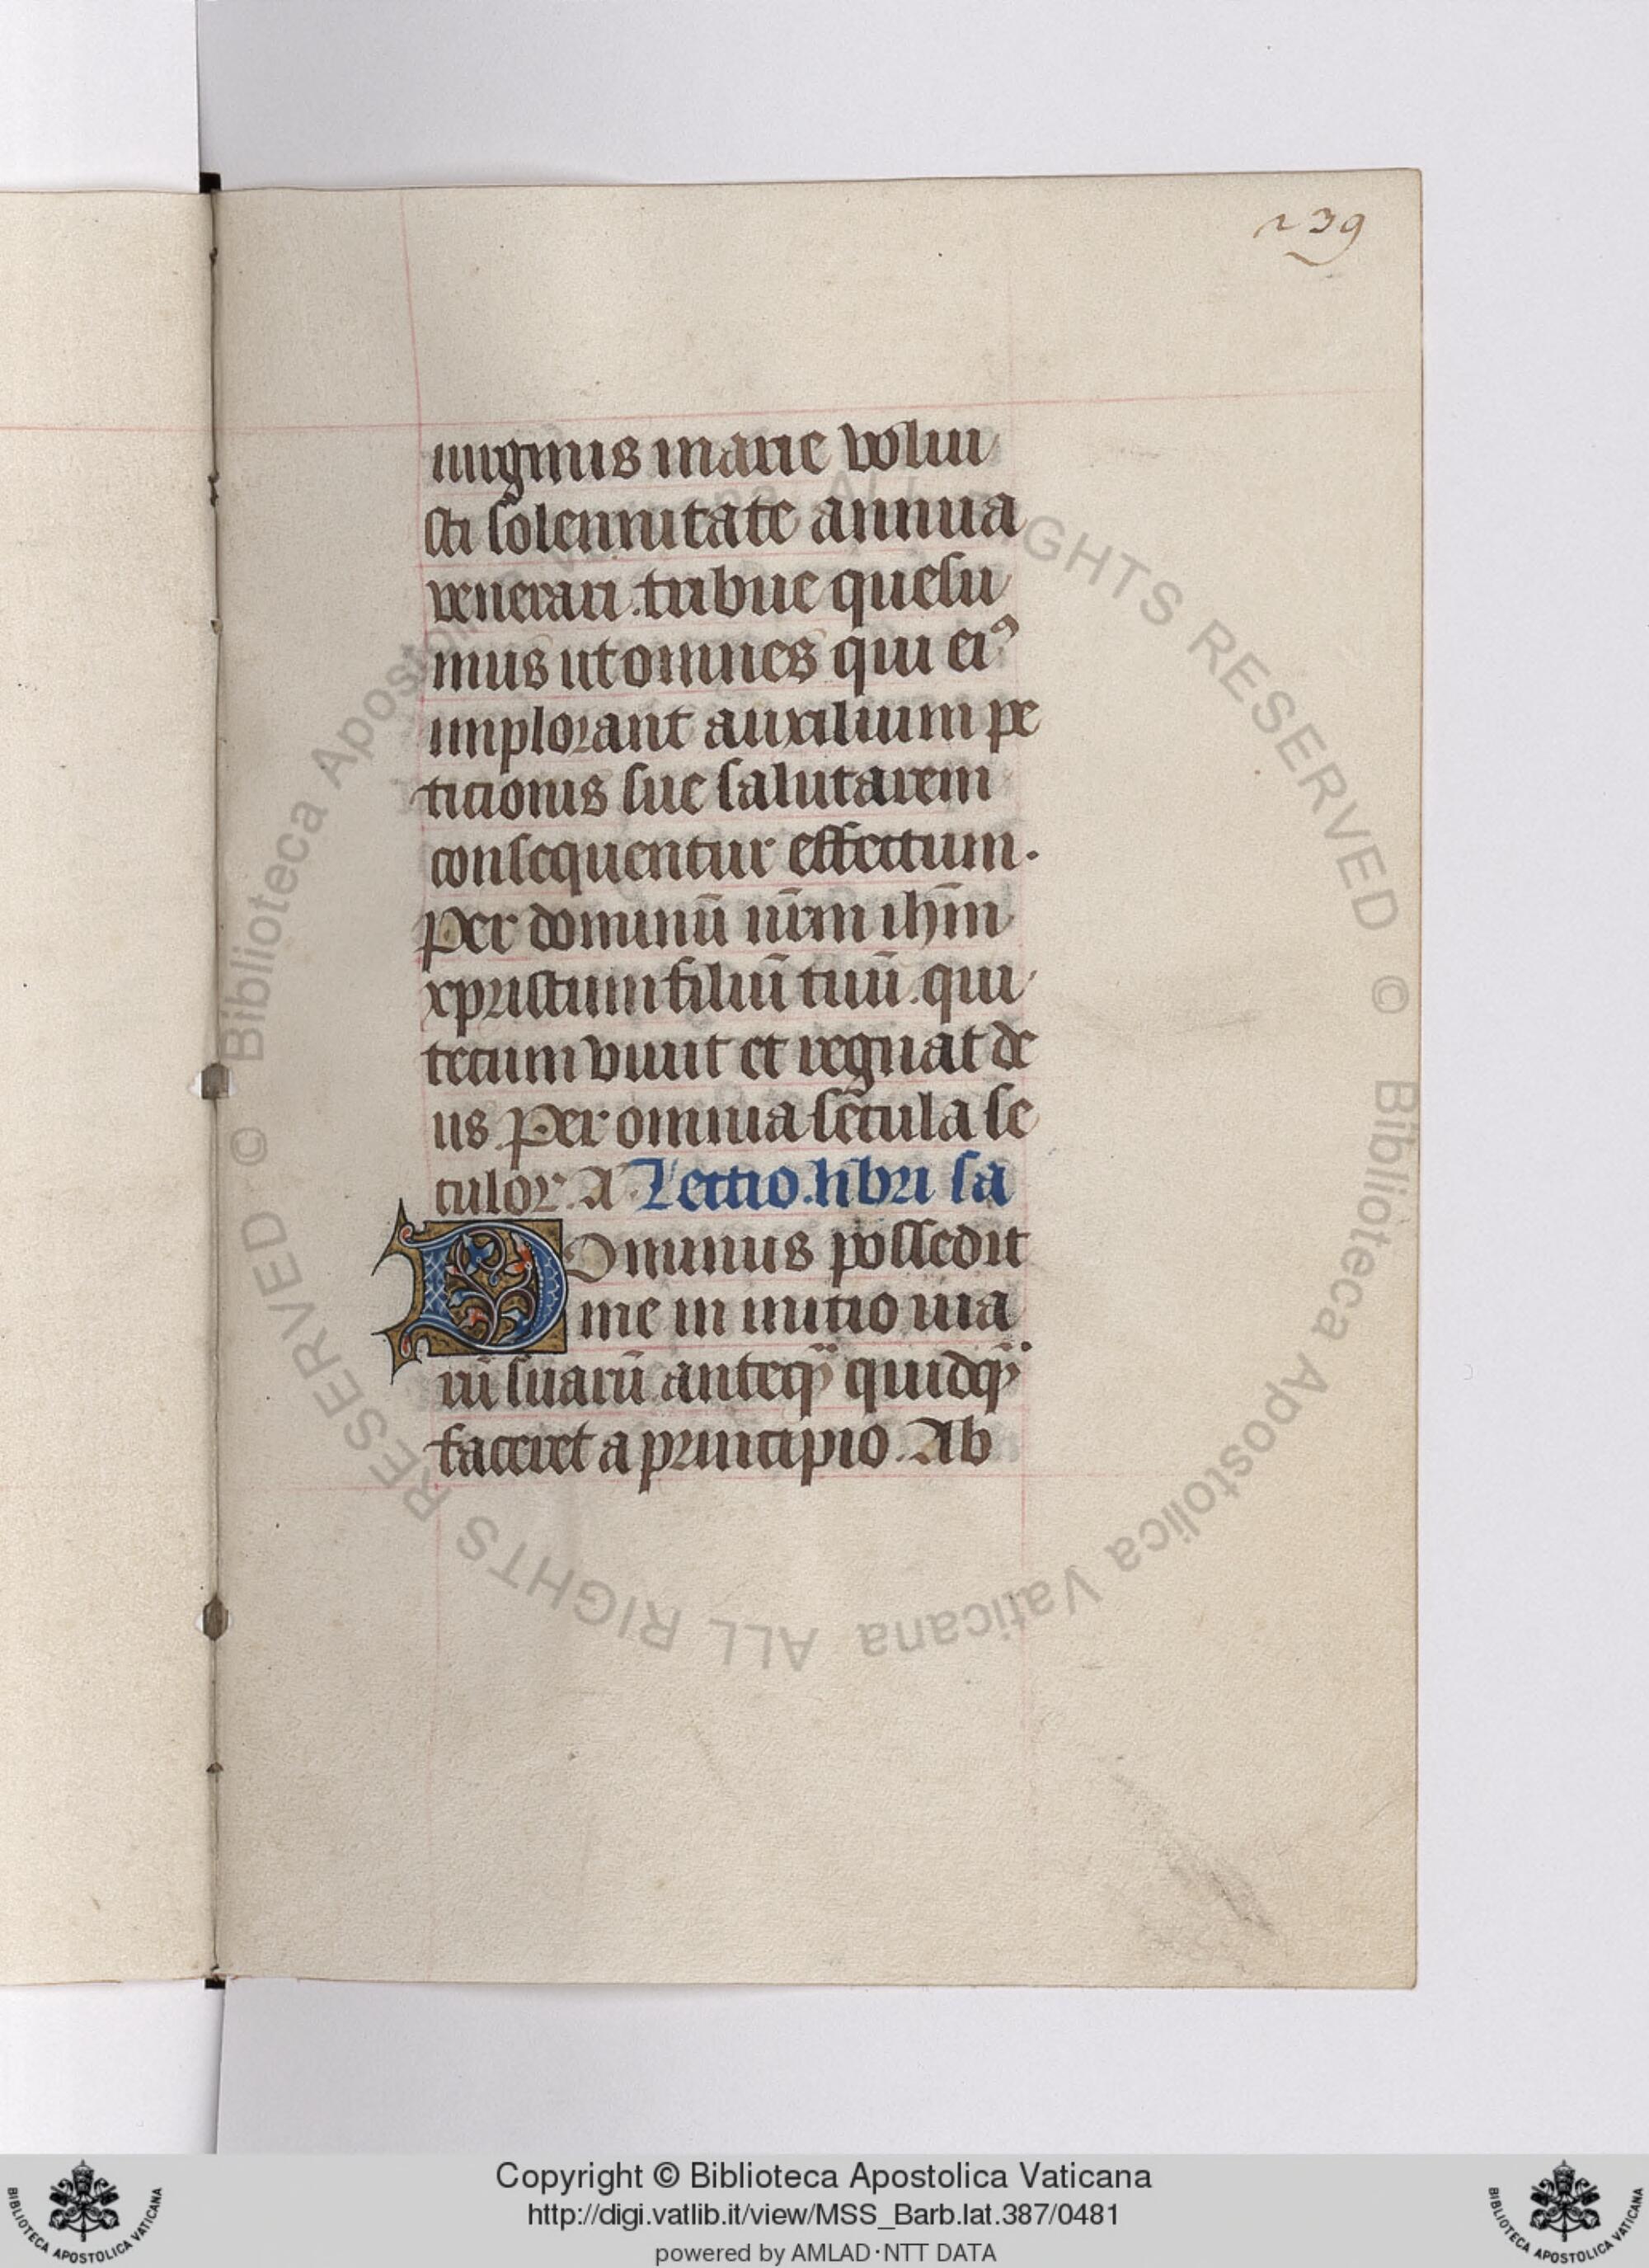 239
uirginis marie volui
sti solennitate annua
venerari. tribue quesu
mus ut omnes qui eiꝰ
implorant auxilium pe
ticionis sue salutarem
consequentur effectum.
Per dominū nr̄m ihm̄
xpristum filiū tuū. qui
tecum viuit et regnat de
us Per omnia sēcula se
culor. A Lectio. libri sa
Dominus possedit
me in initio uia
rū suarū anteqꝫ quidqꝫ
faceret a principio. Ab
© Biblioteca Apostolica Vaticana ALL RIGHTS RESERVED © Biblioteca Apostolica Vaticana ALL RIGHTS RESERVED
Copyright © Biblioteca Apostolica Vaticana
http://digi.vatlib.it/view/MSS_Barb.lat.387/0481
powered by AMLAD·NTT DATA
BIBLIOTECA APOSTOLICA VATICANA
BIBLIOTECA APOSTOLICA VATICANA